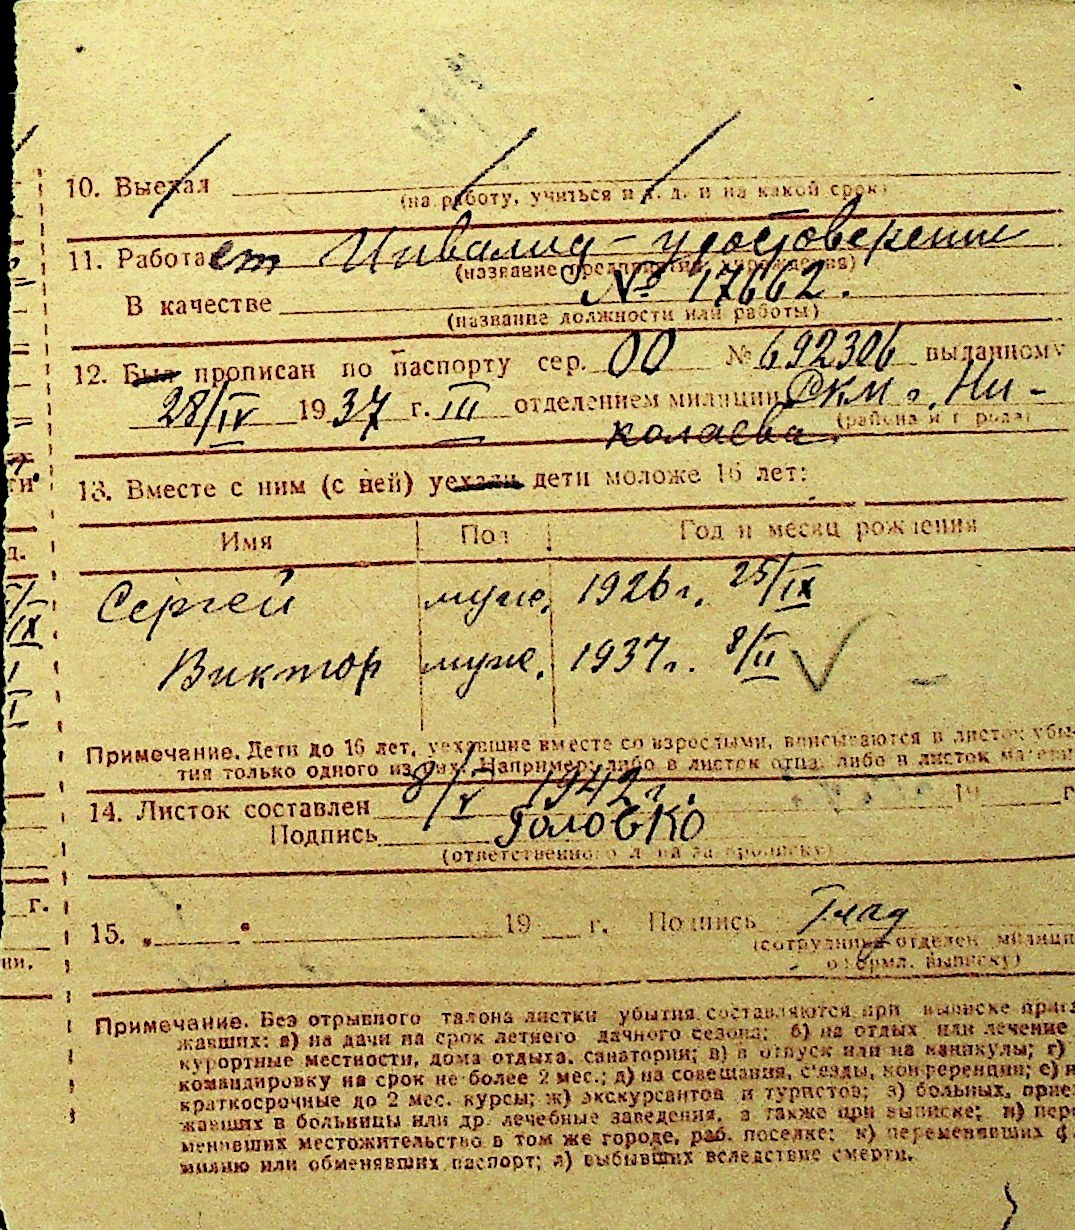 10. Выехал
(на работу, учиться и т. д. и на какой срок)
11. Работает Инвалид - удостоверение
(название предприятия, учреждения)
В качестве № 17662.
(название должности или работы)
12. Был прописан по паспорту сер. 00 № 692306 выданному
28/IV 1937 г. III отделением милиции РКМ г. Ни-
колаева.
(района и города)
13. Вместе с ним (с ней) уехали дети моложе 16 лет:
Имя Пол Год и месяц рождения
Сергей муж. 1926 г. 25/IX
Виктор муж. 1937 г. 8/II
Примечание. Дети до 16 лет, уехавшие вместе со взрослыми, вписываются в листок убы-
тия только одного из них. Например: либо в листок отца, либо в листок матери
14. Листок составлен 8/V 1942 г. 19 г
Подпись Головко
(ответственного лица за прописку)
15. " " 19 г. Подпись
(сотрудника отделен. милиции
оформл. выписку)
Примечание. Без отрывного талона листки убытия составляются при выписке приез
жавших: а) на дачи на срок летнего дачного сезона; б) на отдых или лечение
курортные местности, дома отдыха, санатории; в) в отпуск или на каникулы; г)
командировку на срок не более 2 мес.; д) на совещания, с'езды, конференции; е) н
краткосрочные до 2 мес. курсы; ж) экскурсантов и туристов; з) больных, прие
жавших в больницы или др. лечебные заведения, а также при выписке; и) пере
менивших местожительство в том же городе, раб. поселке; к) переменявших ф
милию или обменявших паспорт; л) выбывших вследствие смерти.